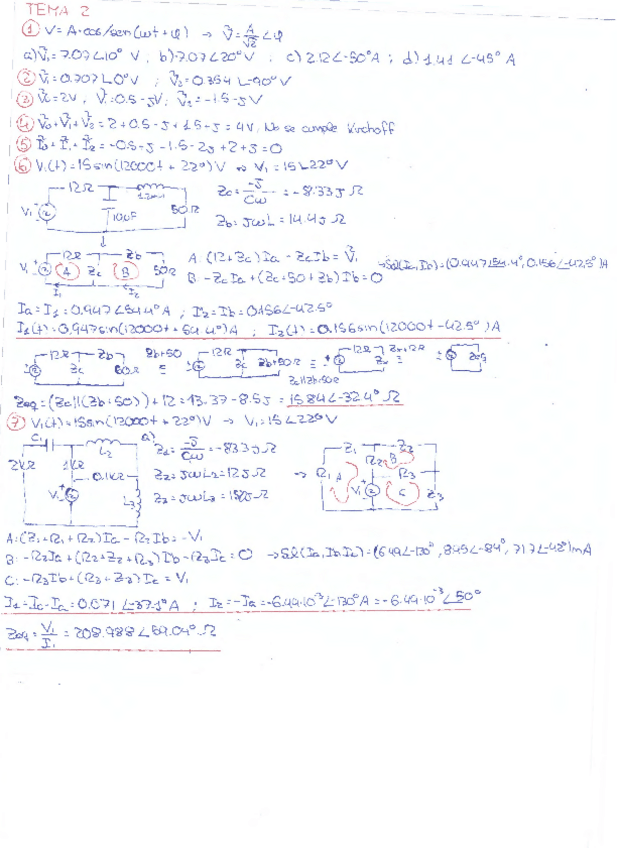 TEMA 2
① V = A·cos/sen(ωt + φ) → Ṽ = A/√2 ∠φ
a) Ṽ₁ = 7.07∠10° V, b) 7.07∠20° V; c) 2.12∠-50° A; d) 1.41∠-45° A
② Ṽ₁ = 0.707∠0° V; Ṽ₂ = 0.354∠-90° V
③ Ṽc = 2V, Ṽ₁ = 0.5 - j V; Ṽ₂ = -1.5 - j V
④ Ṽ₀ + Ṽ₁ + Ṽ₂ = 2 + 0.5 - j + 1.5 - j = 4V, No se cumple Kirchoff
⑤ Ĩ₀ + Ĩ₁ + Ĩ₂ = -0.5 - j - 1.5 - 2j + 2 + j = 0
⑥ V₁(t) = 15 sin(12000t + 22°) V → V₁ = 15∠22° V
12Ω 1.2mH
V₁ 10μF 50Ω
Zc = -j/Cω = -8.33j Ω
Zb = jωL = 14.4j Ω
12Ω Zb
V₁ A Zc B 50Ω
I₁ I₂
A: (12+Zc)Ia - ZcIb = Ṽ₁
B: -ZcIa + (Zc + 50 + Zb)Ib = 0
→ Sol(Ia, Ib) = (0.947∠54.4°, 0.156∠-42.5°)A
Ia = I₁ = 0.947∠54.4° A; I₂ = Ib = 0.156∠-42.5°
I₁(t) = 0.947 sin(12000t + 54.4°)A; I₂(t) = 0.156 sin(12000t - 42.5°)A
12Ω Zb Zc 50Ω Zb+50 ≡ 12Ω Zc Zb+50Ω ≡ 12Ω ≡ Zeq
Zc||Zb+50Ω
Zeq = (Zc||(Zb+50)) + 12 = 13.37 - 8.5j = 15.84∠-32.4° Ω
⑦ V₁(t) = 15 sin(12000t + 22°)V → V₁ = 15∠22° V
C₁ L₂ a)
2kΩ 1kΩ 0.1kΩ V₁ L₃
Z₁ = -j/Cω = -833j Ω
Z₂ = jωL₂ = 12j Ω
→ Z₁ Z₂ R₁ A R₂ B R₃ V₁ C Z₃
A: (Z₁ + R₁ + R₂)Ia - R₂Ib = -V₁
B: -R₂Ia + (R₂ + Z₂ + R₃)Ib - R₃Ic = 0 → Sol(Ia, Ib, Ic) = (6.49∠-130°, 8.45∠-84°, 71.7∠-42°)mA
C: -R₃Ib + (R₃ + Z₃)Ic = V₁
I₁ = Ic - Ia = 0.071∠-37.1° A; I₂ = -Ia = -6.49·10⁻³∠-130° A = -6.49·10⁻³∠50°
Zeq = V₁/I₁ = 208.988∠59.04° Ω